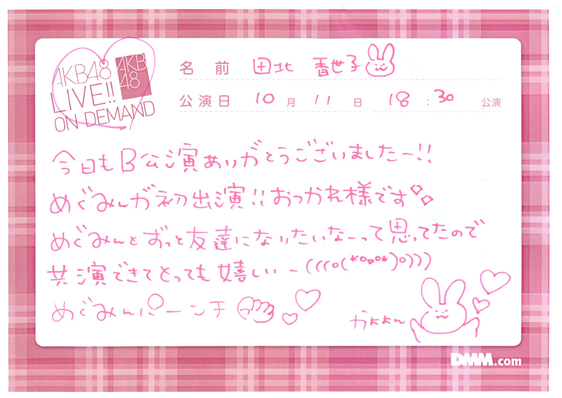 AKB48
LIVE!!
ON DEMAND
AKB
48
名前 田北 香世子
公演日 10月 11日 18:30 公演
今日もB公演ありがとうございましたー!!
めぐみんが初出演!!おつかれ様です
めぐみんとずっと友達になりたいなーって思ってたので
共演できてとっても嬉しいー(((o(*°▽°*)o)))
めぐみんパーンチ
かよよん
DMM.com